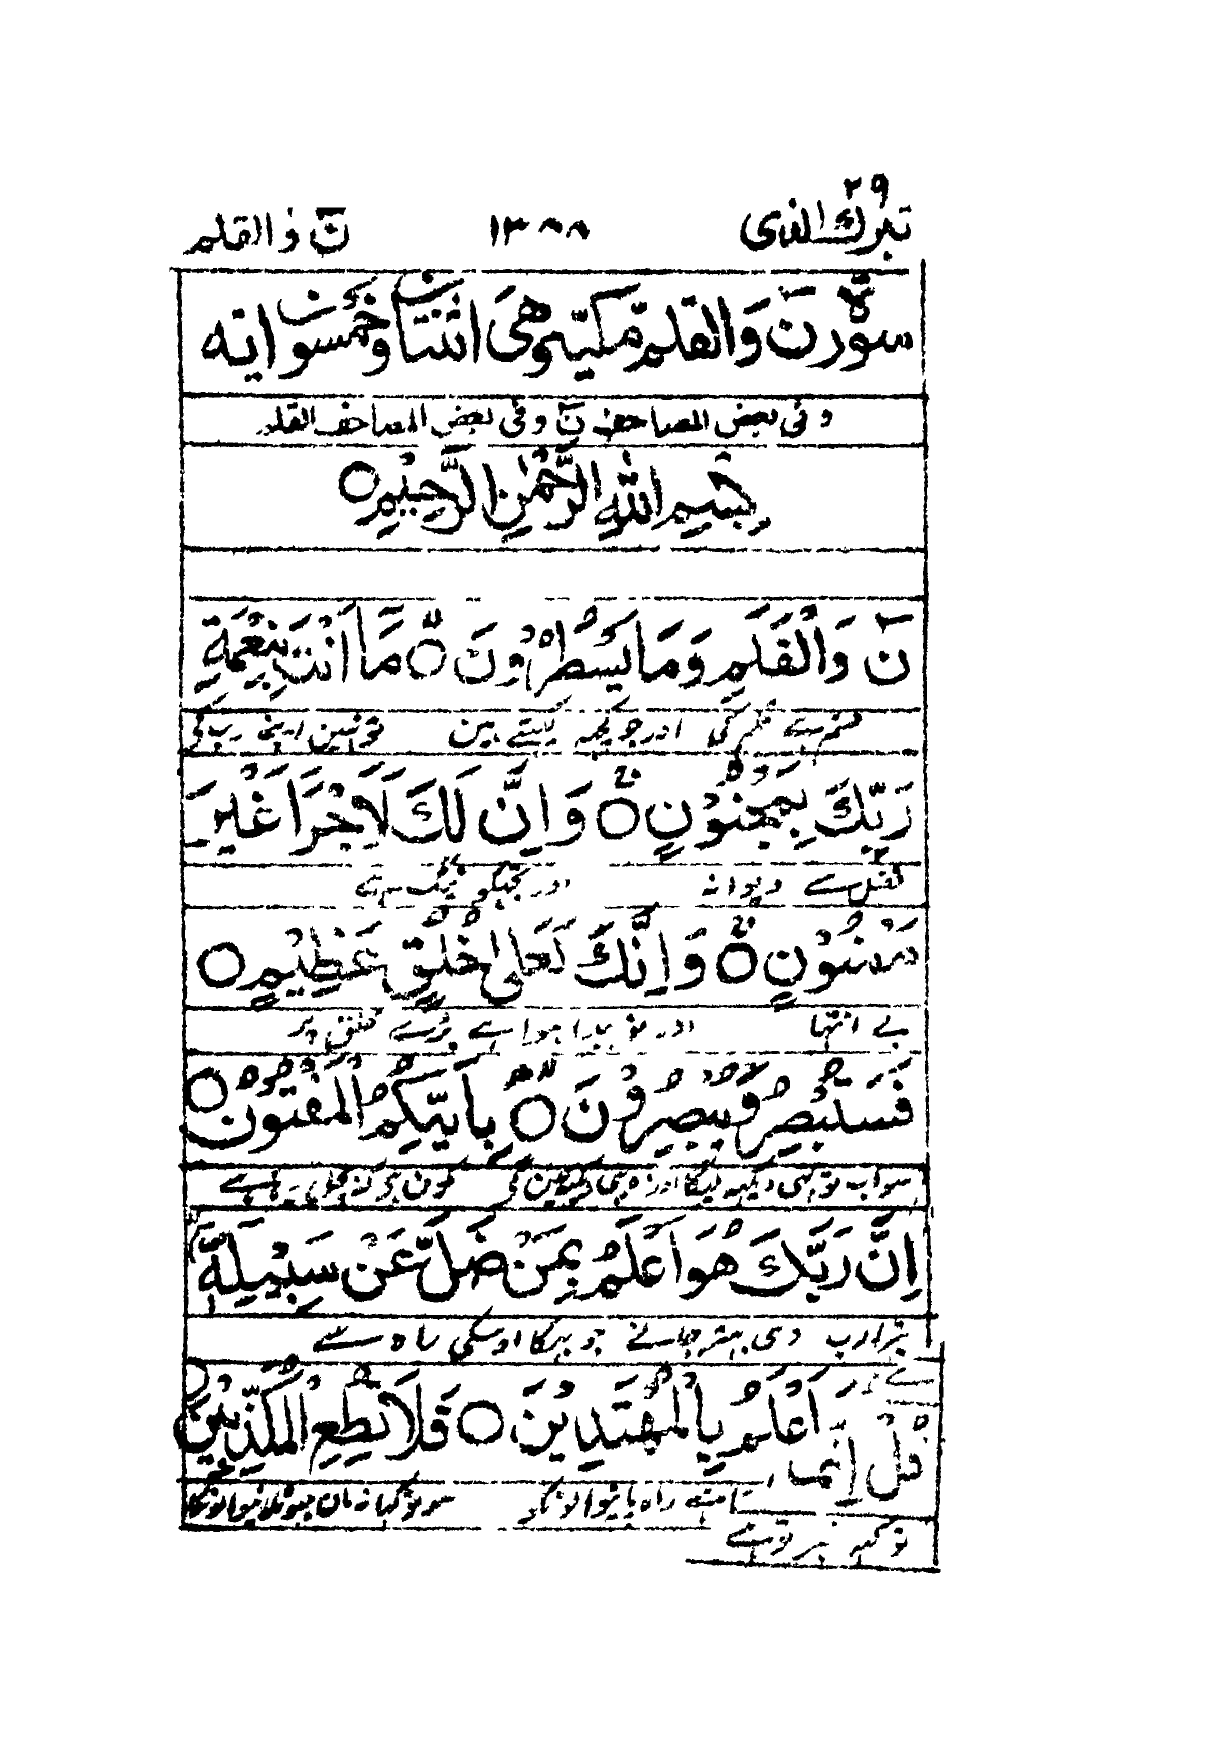 ٢٩
تبرك الذى ١٣٨٨ نٓ والقلم
سورة نٓ والقلم مكيته وهى اثنتان وخمسون ايه
وفى بعض المصاحف نٓ وفى بعض المصاحف القلم
بِسْمِ اللهِ الرَّحْمٰنِ الرَّحِيْمِ ○
نٓ وَالْقَلَمِ وَمَا يَسْطُرُوْنَ ○ مَا اَنْتَ بِنِعْمَةِ
قسم ہے قلم کی اور جو کچھ لکہتے ہین تو نہین اپنے رب کی
رَبِّكَ بِمَجْنُوْنٍ ○ وَاِنَّ لَكَ لَاَجْرًا غَيْرَ
فضل سے دیوانہ اور تجہکو نیگ ہے
مَمْنُوْنٍ ○ وَاِنَّكَ لَعَلٰى خُلُقٍ عَظِيْمٍ ○
بے انتہا اور تو پیدا ہوا ہے بڑے خلق پر
فَسَتُبْصِرُ وَيُبْصِرُوْنَ ○ بِاَيِّكُمُ الْمَفْتُوْنُ ○
سو اب تو بہی دیکہہ لیگا اور وہ بہی دیکہین گے کون ہے کہ بچل رہا ہے
اِنَّ رَبَّكَ هُوَ اَعْلَمُ بِمَنْ ضَلَّ عَنْ سَبِيْلِهٖ
تیرا رب وہی بہتر جانے جو بہکا اوسکی راہ سے
اَعْلَمُ بِالْمُهْتَدِيْنَ ○ فَلَا تُطِعِ الْمُكَذِّبِيْنَ
قُلْ اِنَّمَا
جانتا ہے راہ پانیوالونکو سو تو کہا نہ مان جہوٹلانیوالونکا
تو کہہ